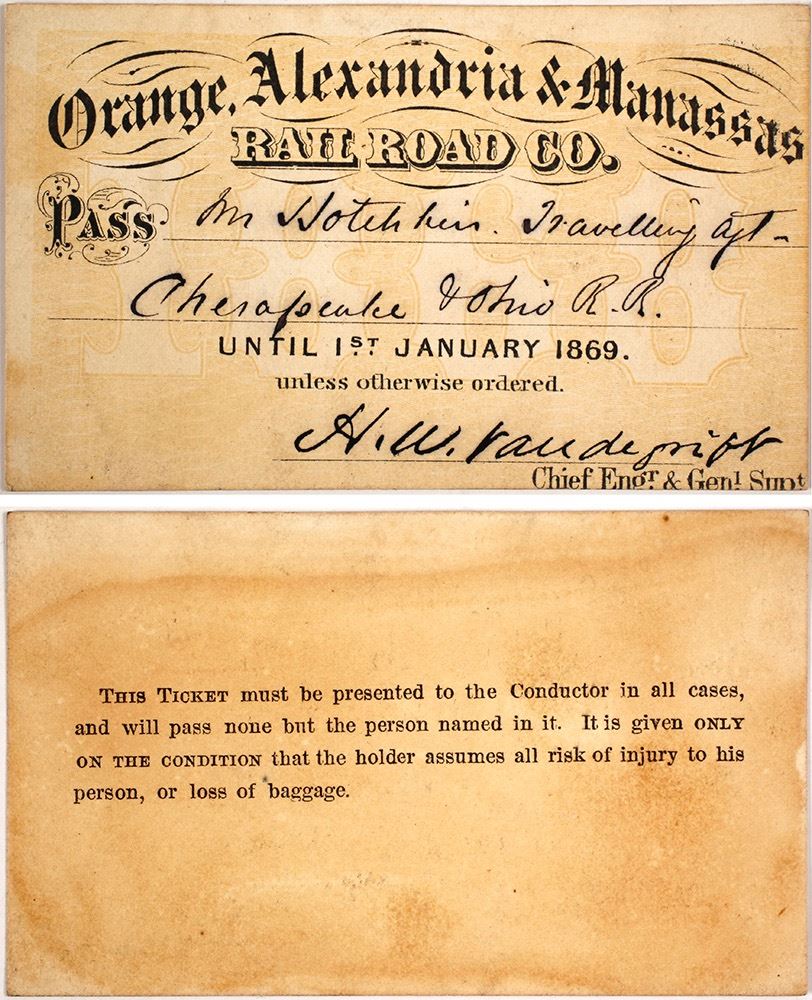 Orange, Alexandria & Manassas
RAIL ROAD CO.
PASS Mr Hotchkiss. Travelling Agt-
Chesapeake & Ohio R. R.
UNTIL 1ST JANUARY 1869.
unless otherwise ordered.
H. W. Vandegrift
Chief Engr & Genl Supt
THIS TICKET must be presented to the Conductor in all cases,
and will pass none but the person named in it. It is given ONLY
ON THE CONDITION that the holder assumes all risk of injury to his
person, or loss of baggage.